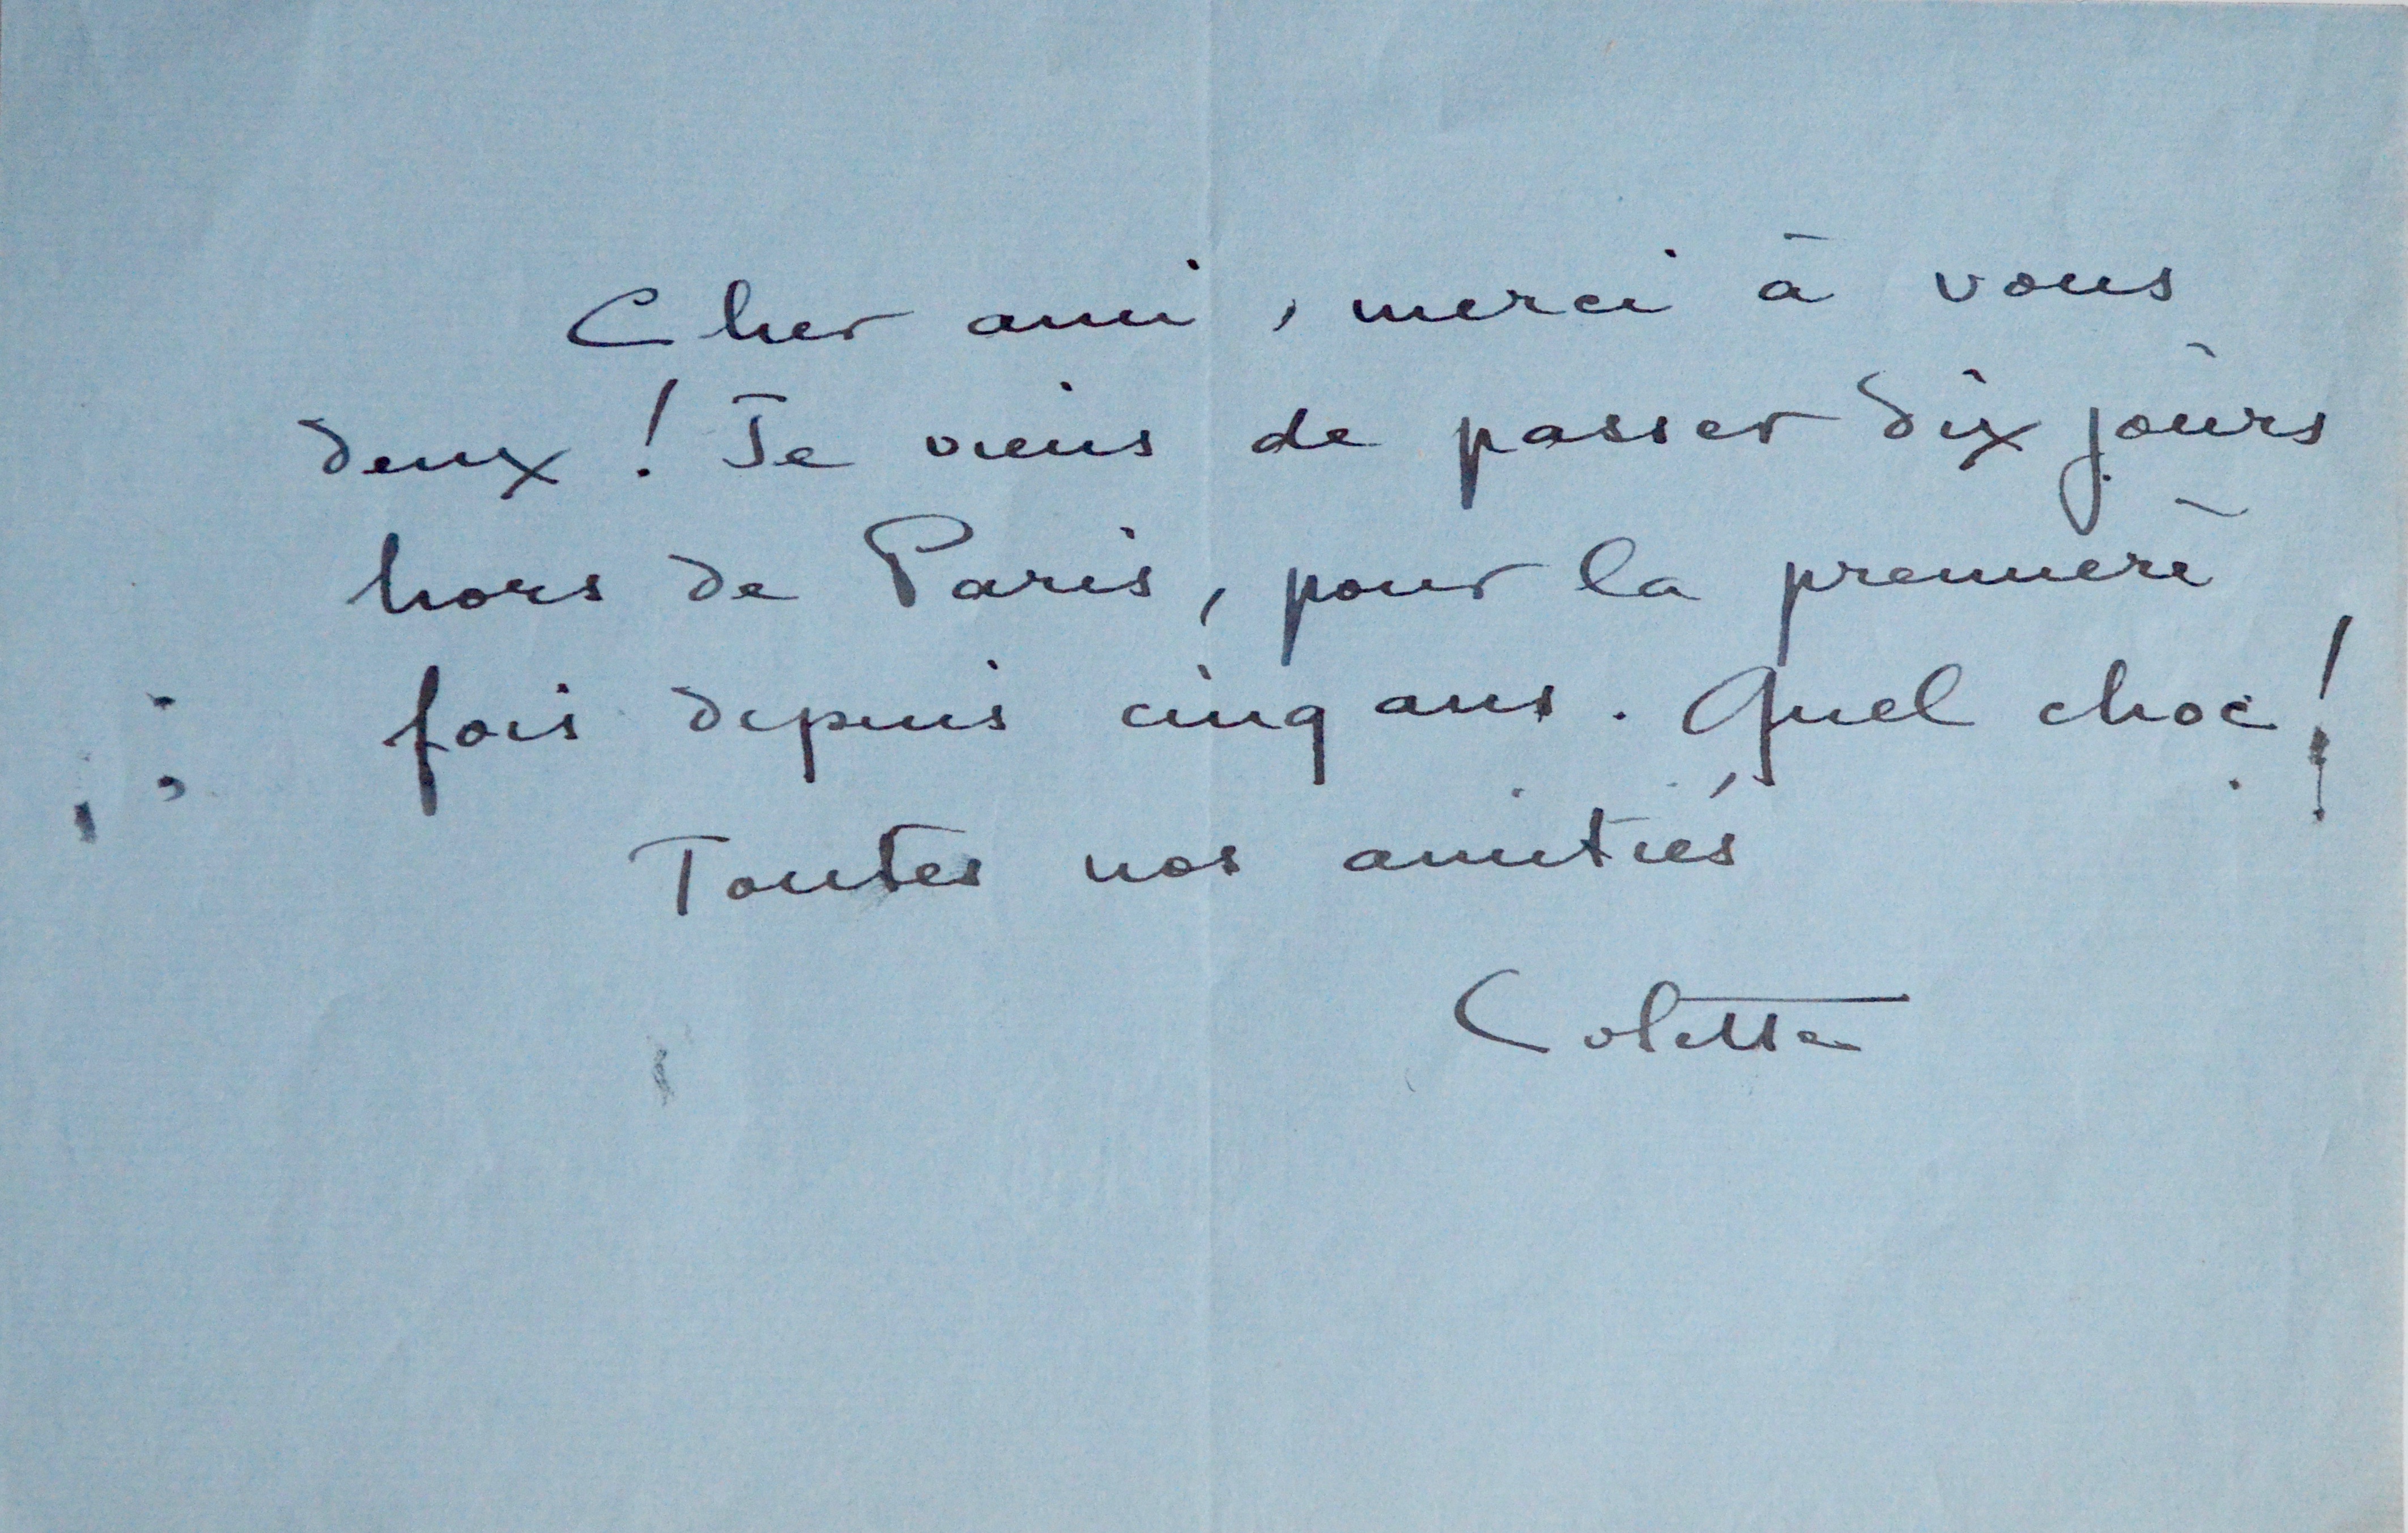 Cher ami, merci à vous
deux ! Je viens de passer dix jours
hors de Paris, pour la première
fois depuis cinq ans. Quel choc !
Toutes nos amitiés
Colette